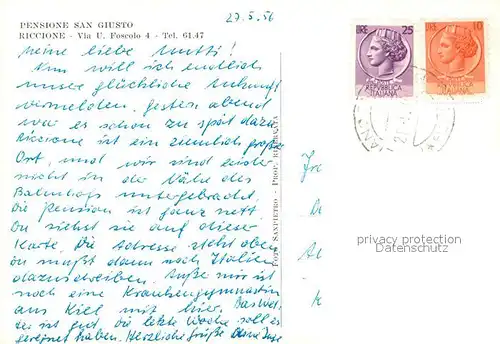 PENSIONE SAN GIUSTO
RICCIONE - Via U. Foscolo 4 - Tel. 61.47
27.5.56
Meine liebe Mutti!
Nun will ich endlich
unsere glückliche Ankunft
vermelden. Gestern abend
war es schon zu spät dazu.
Riccione ist ein ziemlich großer
Ort, und wir sind leider
nicht in der Nähe des
Bahnhofs untergebracht.
Die Pension ist ganz nett.
Du siehst sie auf dieser
Karte. Die Adresse steht oben
du mußt dann noch Italien
dazuschreiben. Außer mir ist
noch eine Krankengymnastin
aus Kiel mit hier. Das Wet-
ter ist gut, die letzte Woche soll es
geregnet haben. Herzliche Grüße Deine
FOTO SANPIETRO - PROP. RISERVATA
LIRE 25
REPUBBLICA
ITALIANA
LIRE 10
REPUBBLICA
ITALIANA
privacy protection
Datenschutz